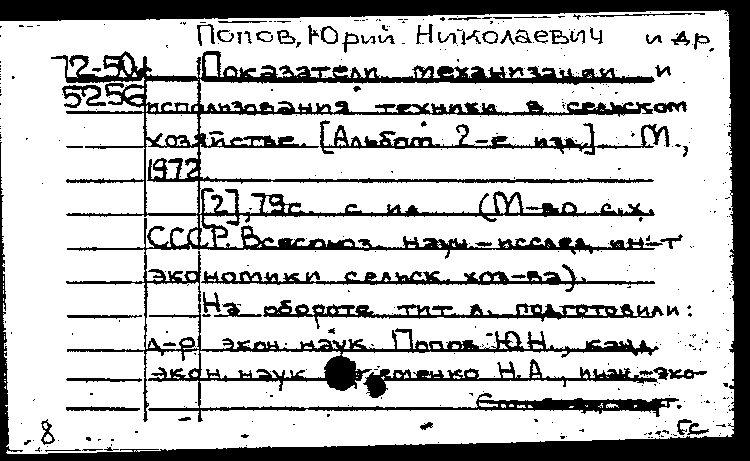 Попов, Юрий Николаевич и др.
72-50
5256
Показатели механизации и
использования техники в сельском
хозяйстве. [Альбом. 2-е изд.]. М.,
1972.
[2], 79с. с ил. (М-во с.х.
СССР. Всесоюз. науч.-исслед. ин-т
экономики сельск. хоз-ва).
На обороте тит. л. подготовили:
д-р экон. наук Попов Ю.Н., канд.
экон. наук Н.А., инж.-эко-
8